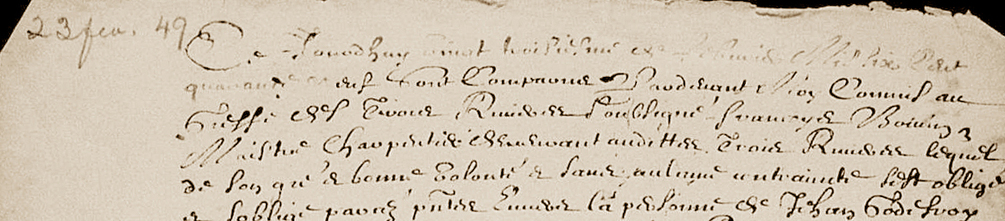 23 feu. 49
Ce Jourdhuy vingt troisiesme de feburier Mil six Cent
quarante et neuf sont Comparus Pardevant Moy Commis au
Greffe des Trois Rivieres soubsigné françoys Boivin
Maistre Charpentier demeurant auditte Trois Rivieres lequel
de son gré et bonne volonté et sans aulcune contrainte s'est obligé
et soblige par ces puttes Envers la personne de Jehan Godefroy